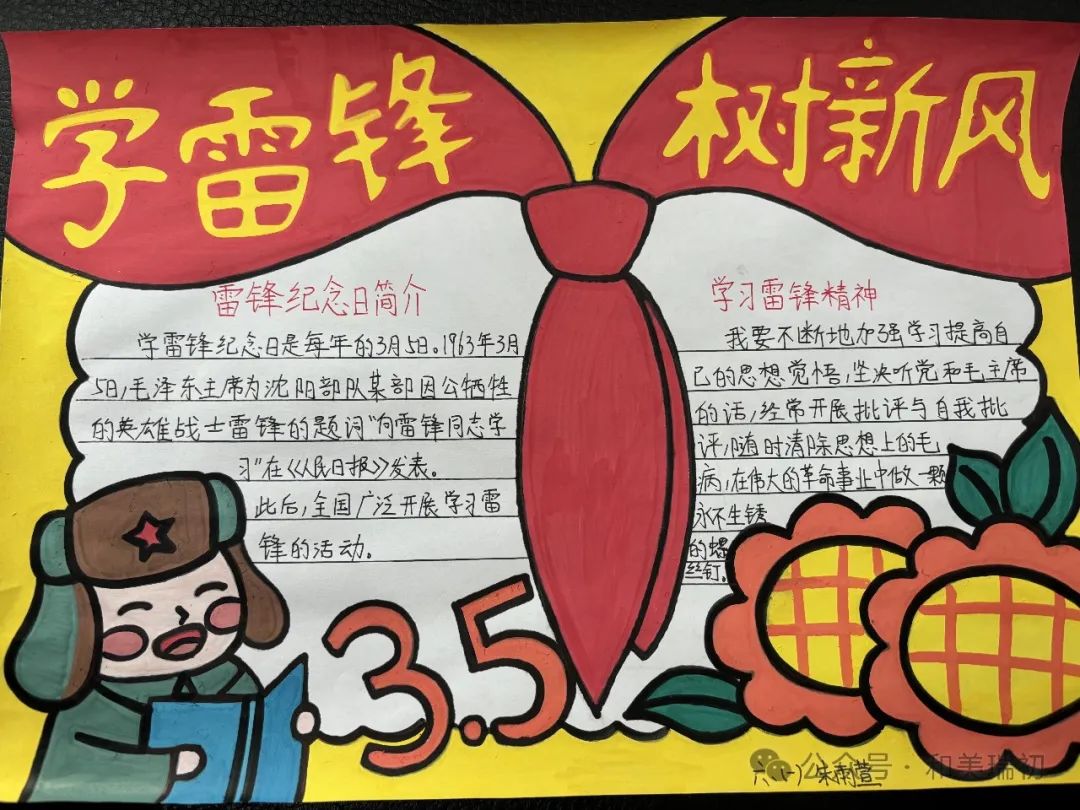 学雷锋 树新风
雷锋纪念日简介
学雷锋纪念日是每年的3月5日。1963年3月
5日,毛泽东主席为沈阳部队某部因公牺牲
的英雄战士雷锋的题词“向雷锋同志学
习”在《人民日报》发表。
此后,全国广泛开展学习雷
锋的活动。
学习雷锋精神
我要不断地加强学习提高自
己的思想觉悟,坚决听党和毛主席
的话,经常开展批评与自我批
评,随时清除思想上的毛
病,在伟大的革命事业中做一颗
永不生锈
的螺
丝钉。
3.5
六(一)朱雨萱
公众号·和美瑞初